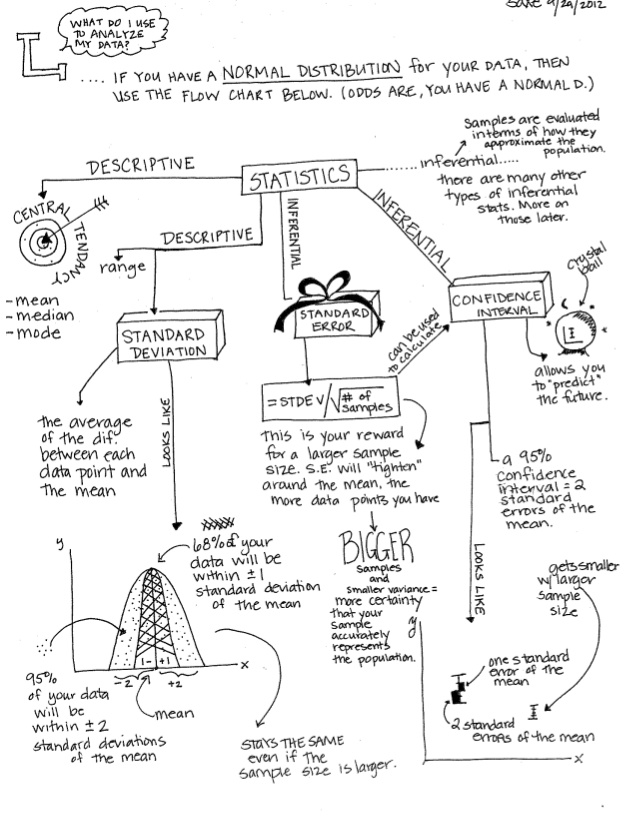 Date 9/29/2012
WHAT DO I USE
TO ANALYZE
MY DATA?
.... IF YOU HAVE A NORMAL DISTRIBUTION for YOUR DATA, THEN
USE THE FLOW CHART BELOW. (ODDS ARE, YOU HAVE A NORMAL D.)
Samples are evaluated
interms of how they
approximate the
population.
inferential.....
there are many other
types of inferential
stats. More on
those later.
STATISTICS
DESCRIPTIVE
CENTRAL
TENDANCY
-mean
-median
-mode
DESCRIPTIVE
range
STANDARD
DEVIATION
the average
of the dif.
between each
data point and
the mean
LOOKS LIKE
INFERENTIAL
STANDARD
ERROR
= STDEV/√# of
samples
This is your reward
for a larger sample
size. S.E. will "tighten"
around the mean, the
more data points you have
BIGGER
samples
and
smaller variance =
more certainty
that your
sample
accurately
represents
the population.
can be used
to calculate
INFERENTIAL
CONFIDENCE
INTERVAL
crystal
ball
allows you
to "predict"
the future.
a 95%
confidence
interval = 2
standard
errors of the
mean.
LOOKS LIKE
gets smaller
w/ larger
sample
size
y
one standard
error of the
mean
2 standard
errors of the mean
x
y
68% of your
data will be
within ±1
standard deviation
of the mean
1- +1
-2 +2
x
mean
95%
of your data
will be
within ±2
standard deviations
of the mean
STAYS THE SAME
even if the
sample size is larger.